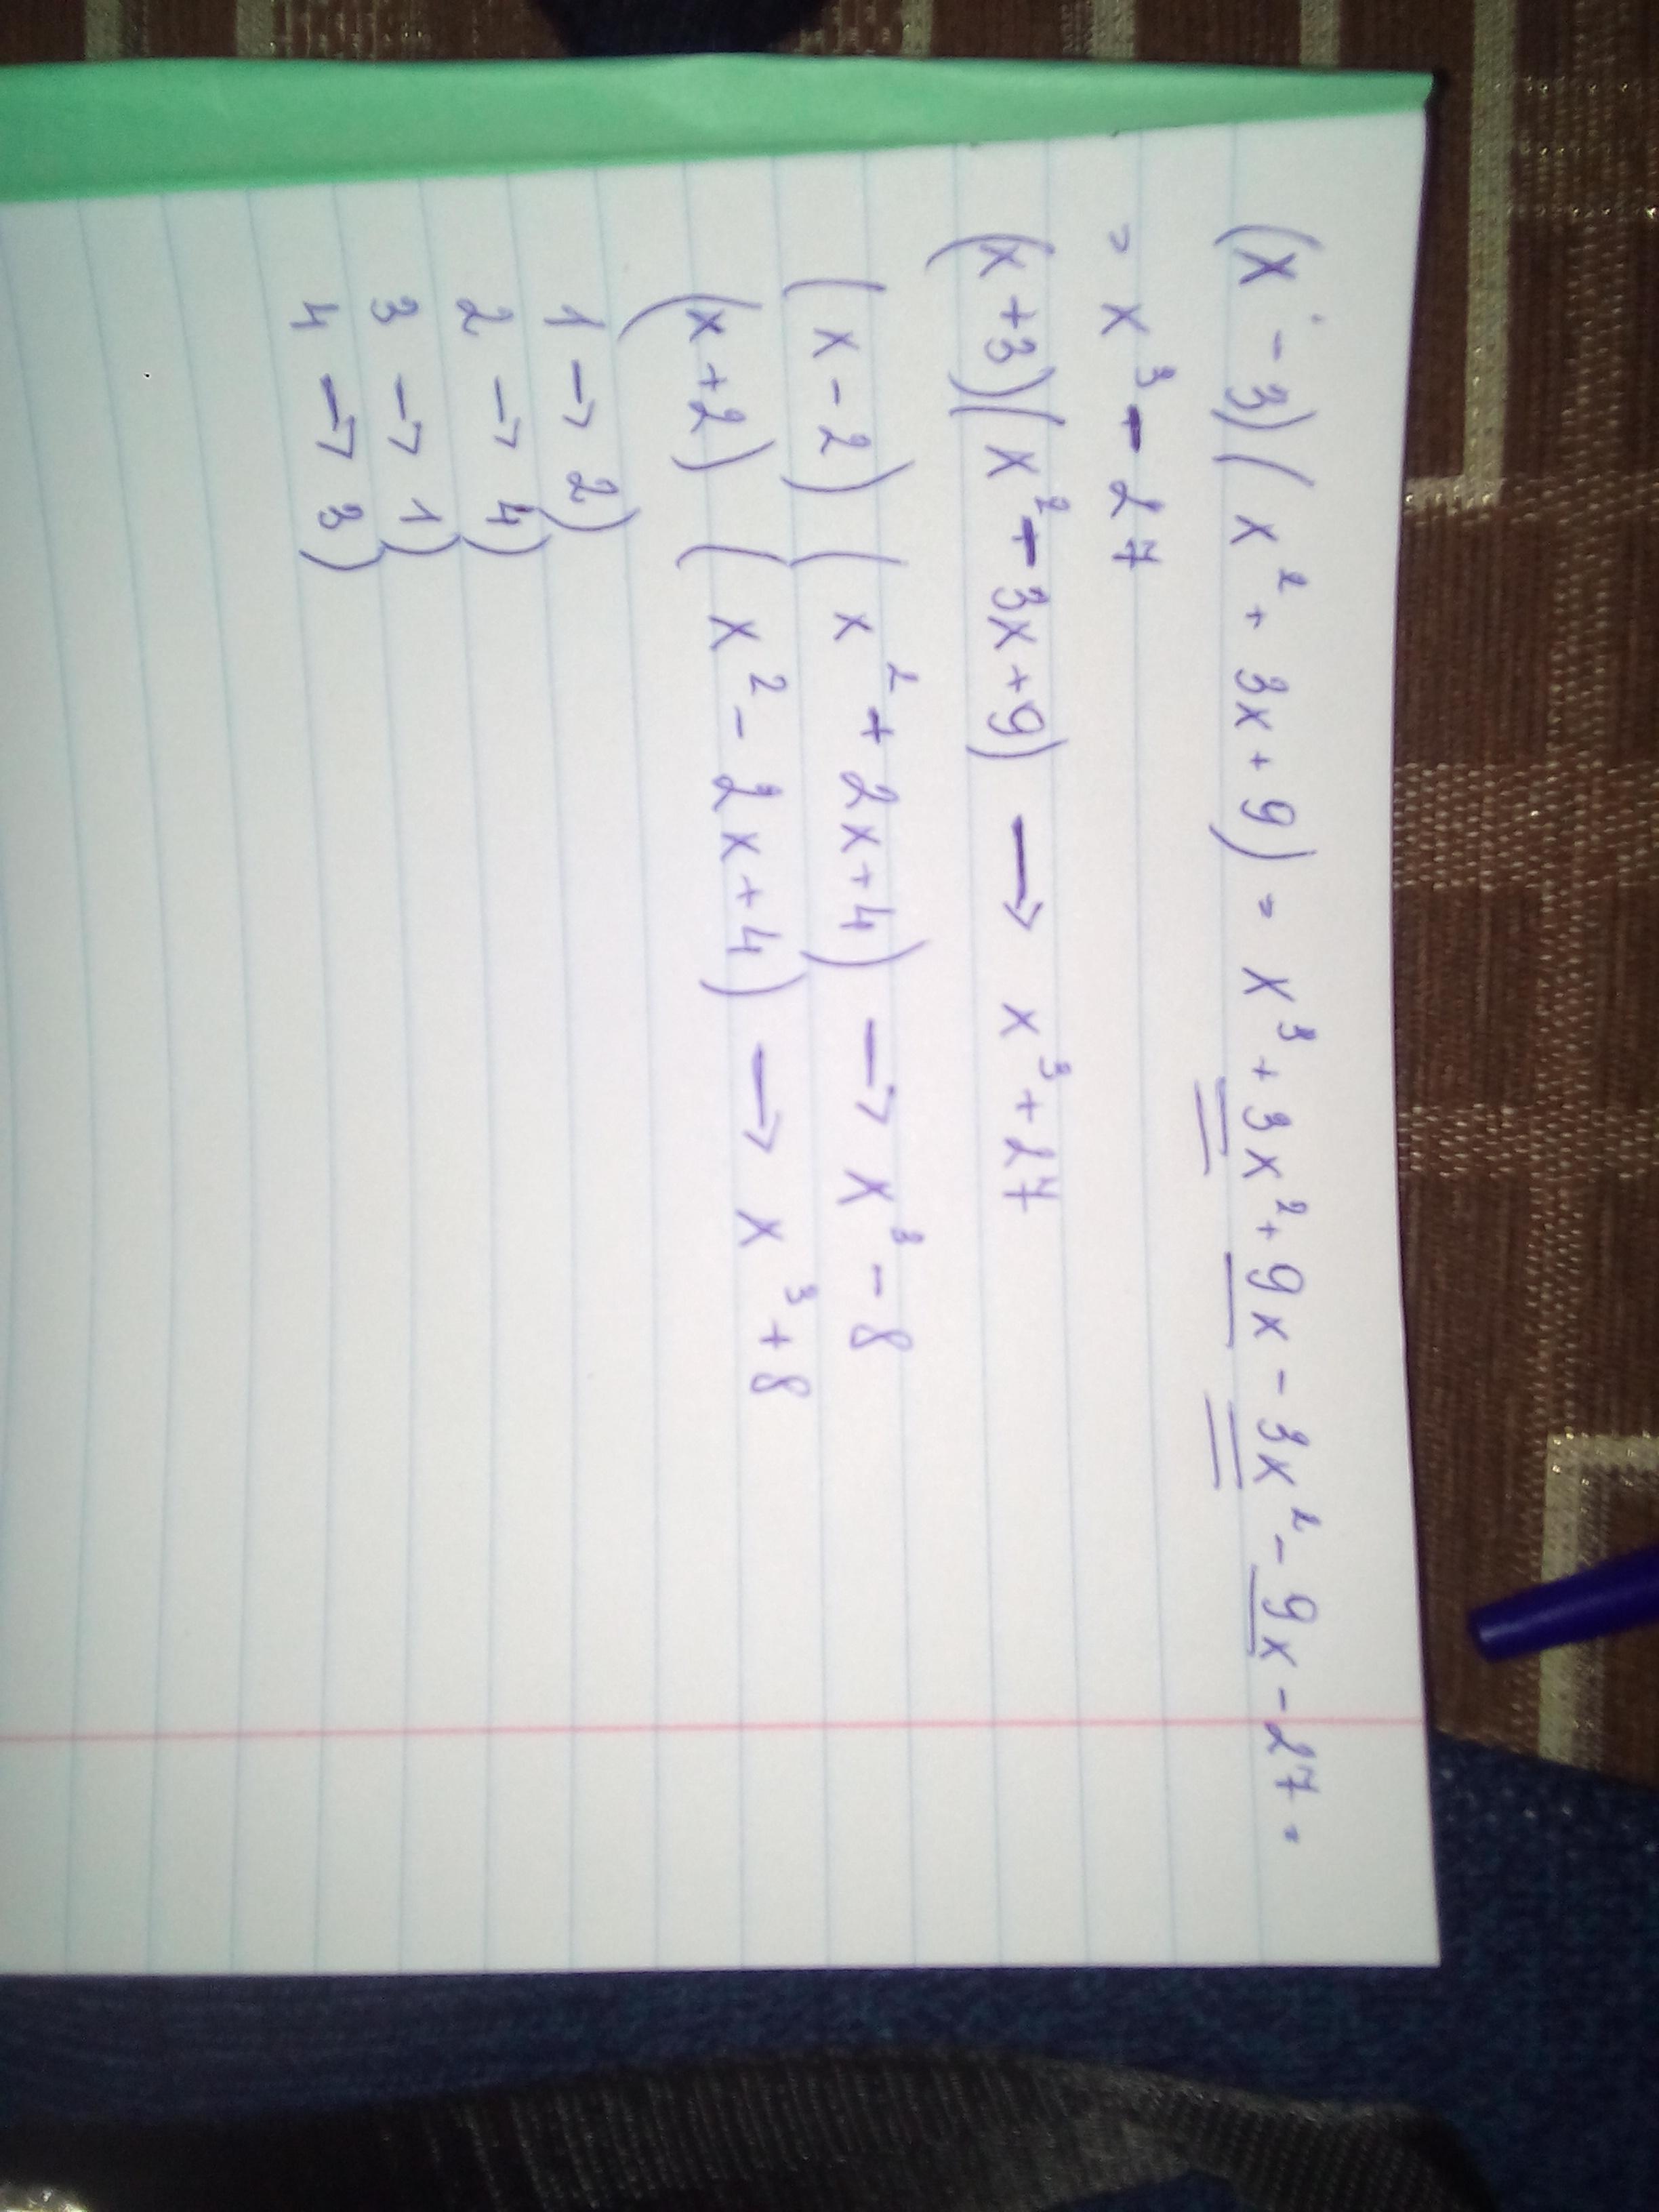 (x - 3)(x² + 3x + 9) = x³ + 3x² + 9x - 3x² - 9x - 27 =
= x³ - 27
(x + 3)(x² - 3x + 9) → x³ + 27
(x - 2)(x² + 2x + 4) → x³ - 8
(x + 2)(x² - 2x + 4) → x³ + 8
1 → 2)
2 → 4)
3 → 1)
4 → 3)